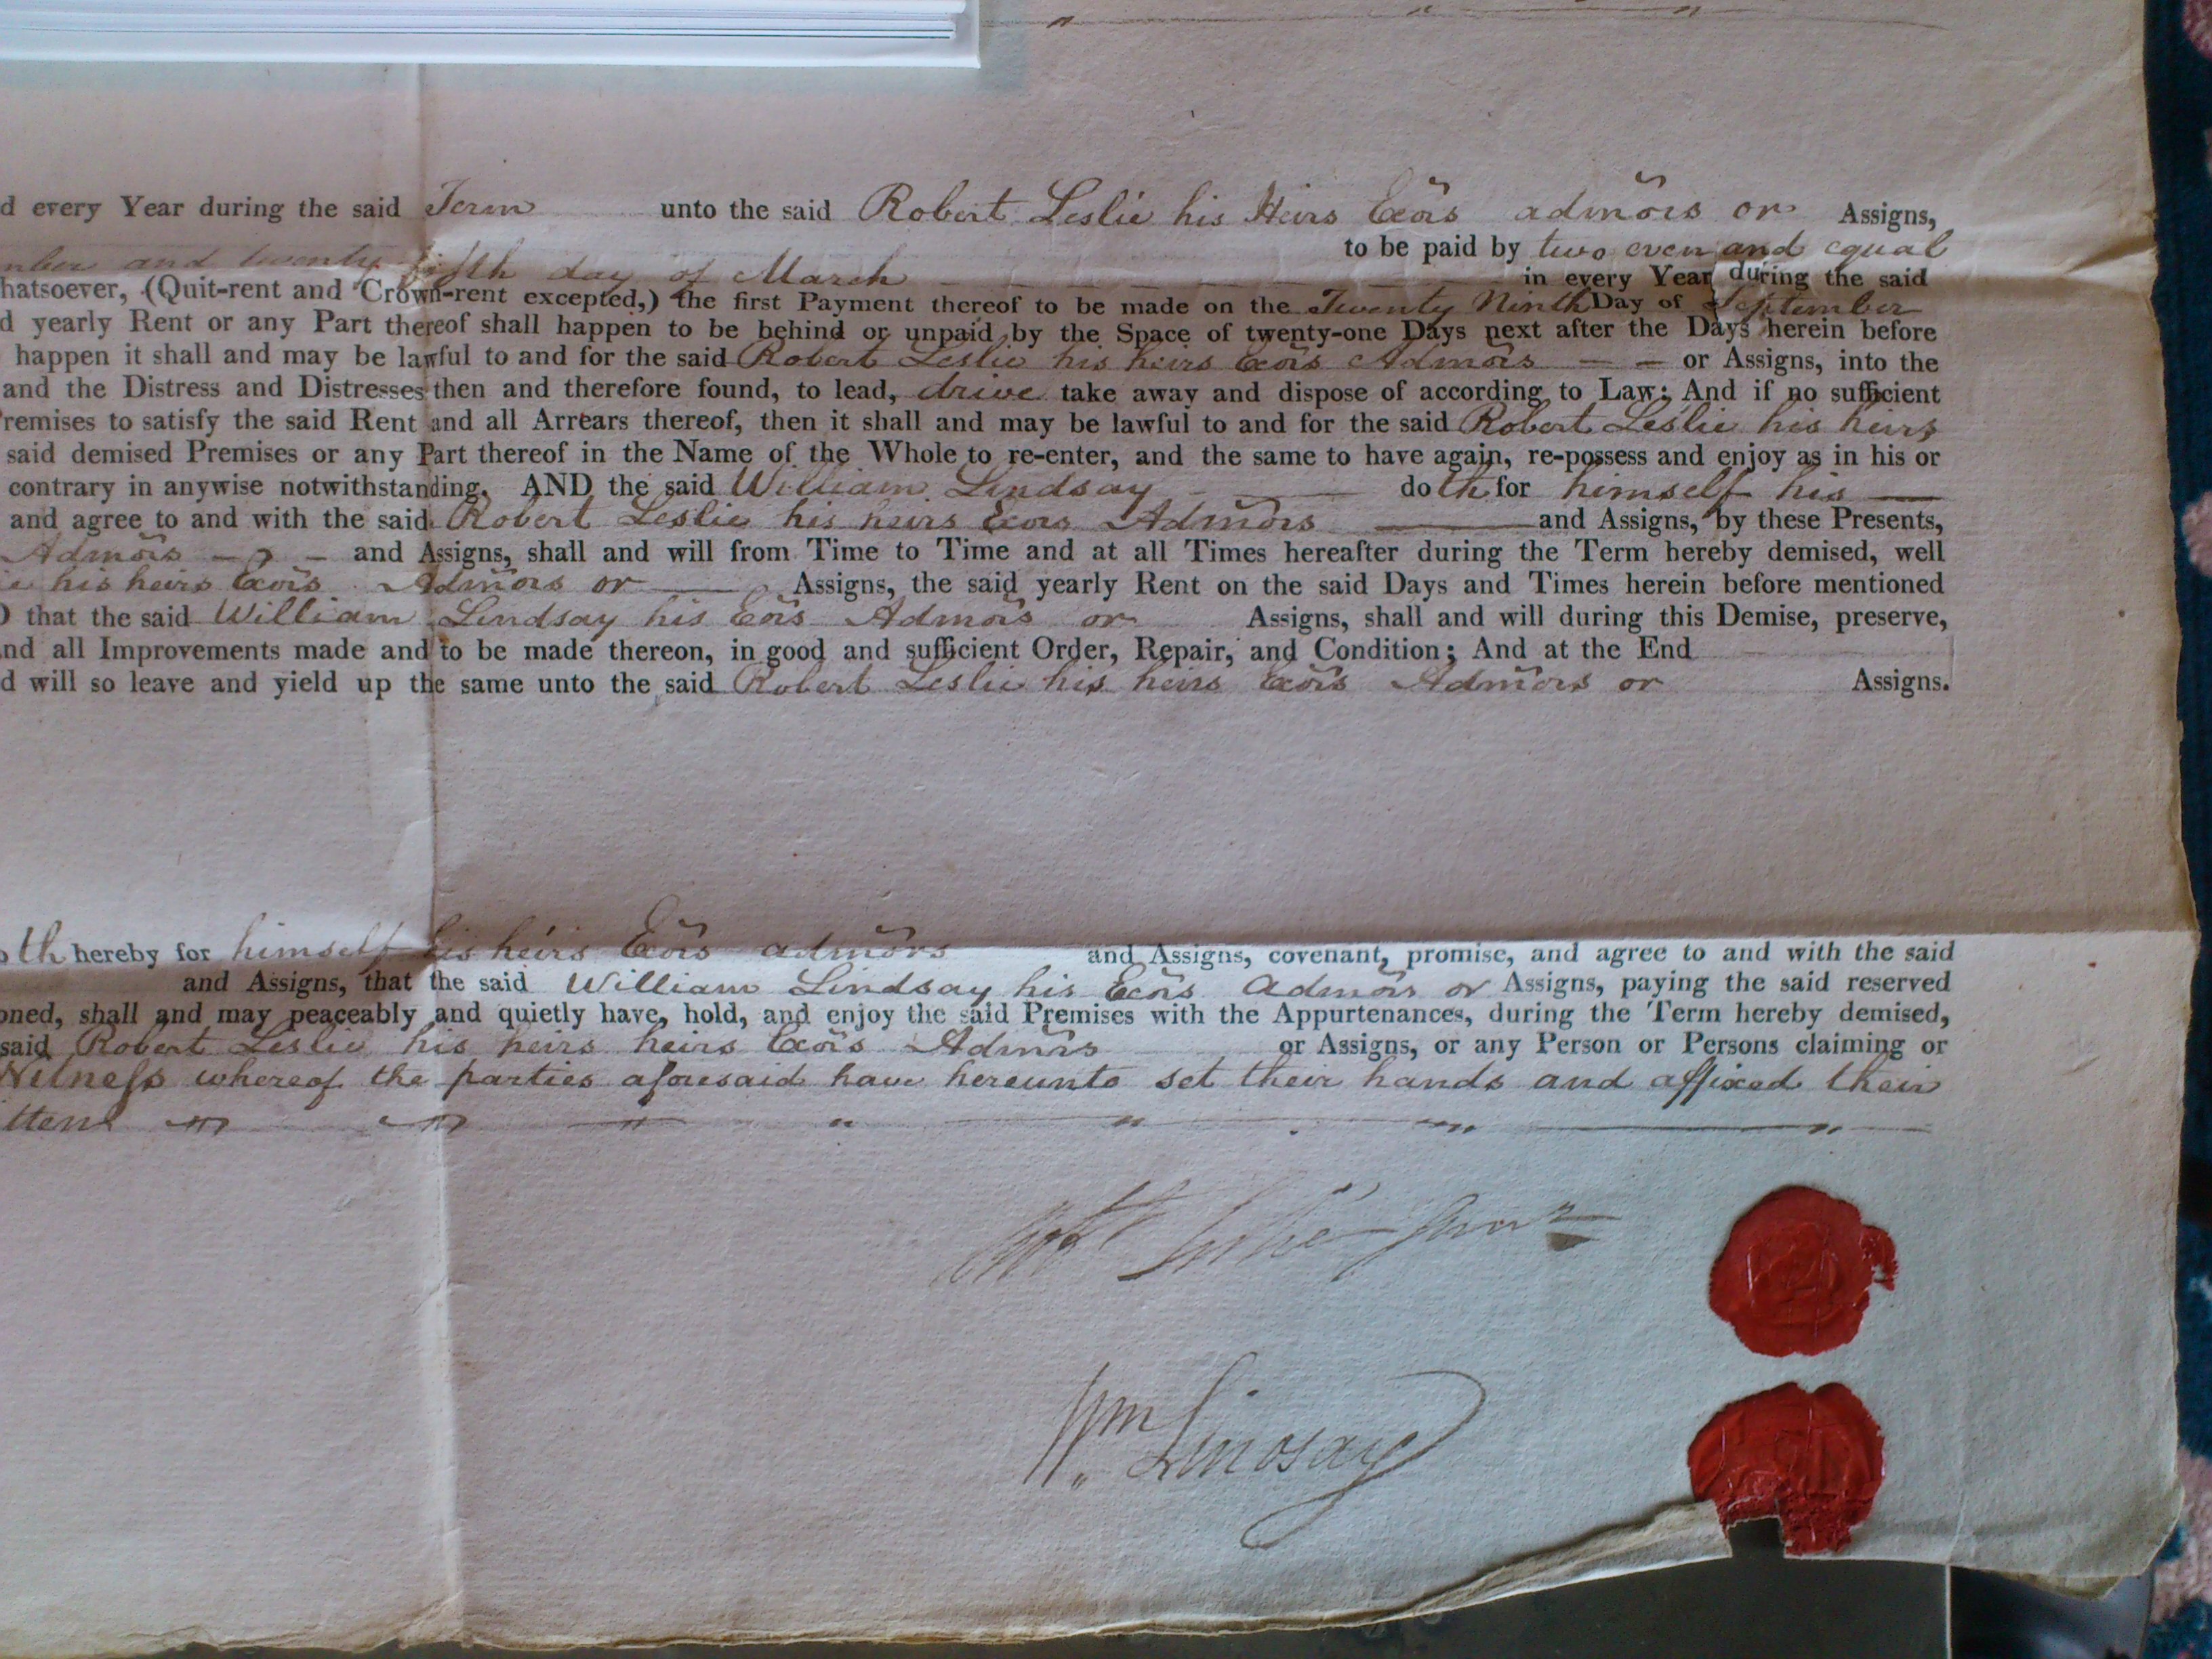 d every Year during the said Term unto the said Robert Leslie his Heirs Exõrs admõrs or Assigns,
to be paid by two even and equal
mber and twenty fifth day of March in every Year during the said
hatsoever, (Quit-rent and Crown-rent excepted,) the first Payment thereof to be made on the Twenty Ninth Day of September
d yearly Rent or any Part thereof shall happen to be behind or unpaid by the Space of twenty-one Days next after the Days herein before
happen it shall and may be lawful to and for the said Robert Leslie his heirs Exõrs Admõrs — — or Assigns, into the
and the Distress and Distresses then and therefore found, to lead, drive take away and dispose of according to Law; And if no sufficient
remises to satisfy the said Rent and all Arrears thereof, then it shall and may be lawful to and for the said Robert Leslie his heirs
said demised Premises or any Part thereof in the Name of the Whole to re-enter, and the same to have again, re-possess and enjoy as in his or
contrary in anywise notwithstanding. AND the said William Lindsay doth for himself his
and agree to and with the said Robert Leslie his heirs Exors Admõrs and Assigns, by these Presents,
Admõrs and Assigns, shall and will from Time to Time and at all Times hereafter during the Term hereby demised, well
ie his heirs Exõrs Admõrs or Assigns, the said yearly Rent on the said Days and Times herein before mentioned
D that the said William Lindsay his Exõrs Admõrs or Assigns, shall and will during this Demise, preserve,
and all Improvements made and to be made thereon, in good and sufficient Order, Repair, and Condition; And at the End
d will so leave and yield up the same unto the said Robert Leslie his heirs Exõrs Admõrs or Assigns.
oth hereby for himself his heirs Exõrs admõrs and Assigns, covenant, promise, and agree to and with the said
and Assigns, that the said William Lindsay his Exõrs Admõrs or Assigns, paying the said reserved
oned, shall and may peaceably and quietly have, hold, and enjoy the said Premises with the Appurtenances, during the Term hereby demised,
said Robert Leslie his heirs heirs Exõrs Admõrs or Assigns, or any Person or Persons claiming or
Witness whereof the parties aforesaid have hereunto set their hands and affixed their
itten
Robt Leslie Junr
Wm Lindsay